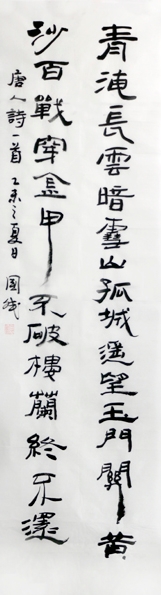 青海長雲暗雪山孤城遙望玉門關黃
沙百戰穿金甲不破樓蘭終不還
唐人詩一首 乙未之夏日 國